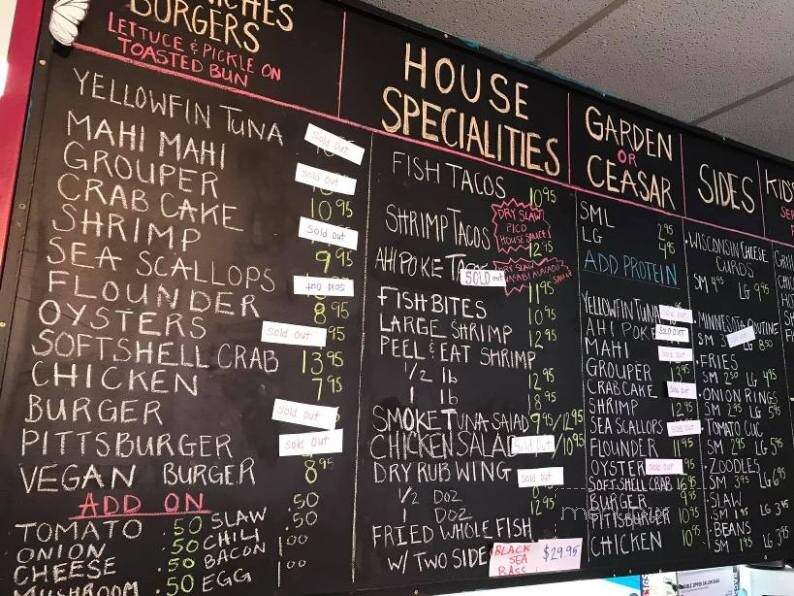 BURGERS
LETTUCE & PICKLE ON
TOASTED BUN
YELLOWFIN TUNA sold out
MAHI MAHI sold out
GROUPER 10 95
CRAB CAKE sold out
SHRIMP 9 95
SEA SCALLOPS sold out
FLOUNDER 8 95
OYSTERS sold out 95
SOFTSHELL CRAB 13 95
CHICKEN 7 95
BURGER sold out
PITTSBURGER sold out
VEGAN BURGER 8 95
ADD ON
TOMATO .50 SLAW .50
ONION .50 CHILI .50
CHEESE .50 BACON 1 00
MUSHROOM .50 EGG 1 00
HOUSE
SPECIALITIES
FISH TACOS 10 95
SHRIMP TACOS DRY SLAW
PICO
HOUSE SAUCE
12 95
AHI POKE SOLD out
11 95
FISH BITES 10 95
LARGE SHRIMP 12 95
PEEL & EAT SHRIMP
1/2 lb 12 95
1 lb 18 95
SMOKE TUNA SALAD 9 95/12 95
CHICKEN SALAD SOLD OUT /10 95
DRY RUB WING sold out
1/2 DOZ
1 DOZ 12 95
FRIED WHOLE FISH
W/ TWO SIDE BLACK
SEA
BASS $29.95
GARDEN
OR
CEASAR
SML 2 95
LG 4 95
ADD PROTEIN
YELLOWFIN TUNA sold out
AHI POKE SOLD OUT
MAHI sold out
GROUPER 13 95
CRAB CAKE sold out
SHRIMP 12 95
SEA SCALLOPS sold out
FLOUNDER 11 95
OYSTER sold out 95
SOFTSHELL CRAB 16 95
BURGER 9 95
PITTSBURGER 10 95
CHICKEN 10 95
SIDES
WISCONSIN CHEESE
CURDS
SM 4 95 LG 9 95
MINNESOTA POUTINE
SM 3 sold out LG 8 50
FRIES
SM 2 50 LG 4 95
ONION RINGS
SM 2 95 LG 5 95
TOMATO CUC
SM 2 95 LG 5 95
ZOODLES
SM 3 95 LG 6 95
SLAW
SM 1 95 LG 3 95
BEANS
SM 1 95 LG 3 95
KIDS